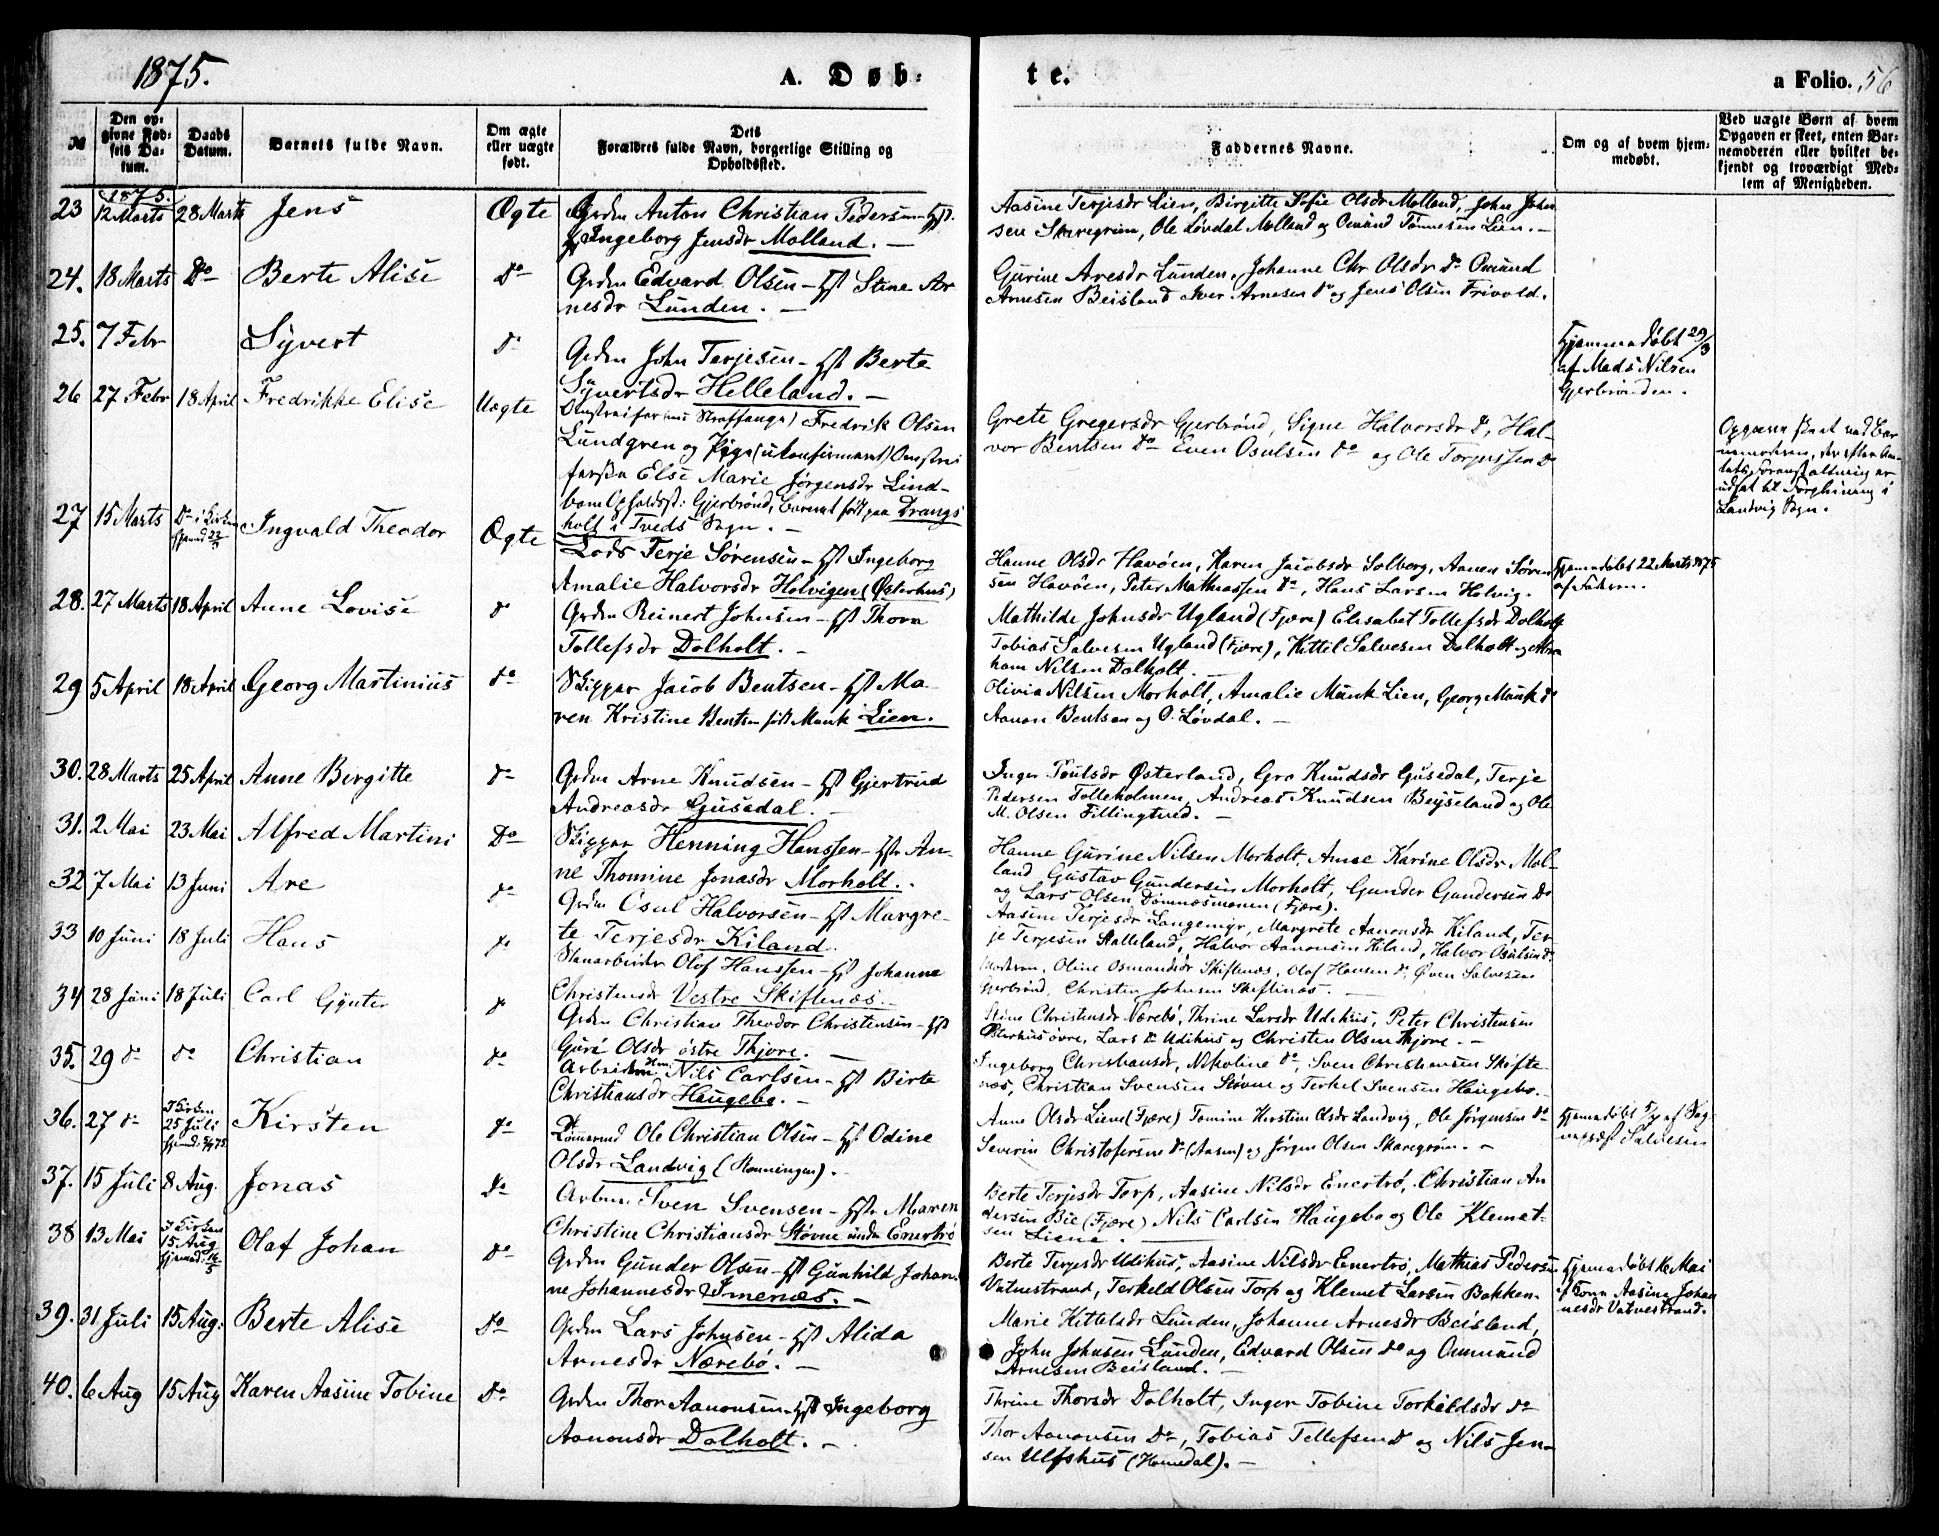 1875.
A. Døb-
te.
a Folio. 56
№
Den op-
givne Fød-
sels Da-
tum.
Daabs
Datum.
Barnets fulde Navn.
Om ægte
eller uægte
født.
Dets
Forældres fulde Navn, borgerlige Stilling og
Opholdssted.
Faddernes Navne.
Om og af hvem hjem-
medøbt.
Ved uægte Børn af hvem
Opgaven er skeet, enten Bar-
nemoderen eller hvilket be-
kjendt og troværdigt Med-
lem af Menigheden.
1875.
23 12 Marts 28 Marts Jens Ægte Grdm Anton Christian Pedersen - Hst.
Ingeborg Jensdr Molland. -
Aasine Terjesdr Lien, Birgitte Sofie Olsdr Molland, John John
sen Skaregrøm, Ole Løvdal Molland og Omund Tønnesen Lien. -
24. 18 Marts Do Berte Alise Do Grdm Edvard Olsen - Hst Stine Ar
nesdr Lunden. -
Gurine Aresdr Lunden, Johanne Chr Olsdr Do Omund
Arnesen Beisland Iver Arnesen Do og Jens Olsen Frivold.
25. 7 Febr Syvert Do Grdm John Terjesen - Hst Berte
Syvertsdr Helleland. -
Hjemmedøbt 29/3
af Mads Nilsen
Gjerbrønden.
26 27 Febr 18 April Fredrikke Elise Uægte Omstreifer (nu Straffange) Fredrik Olsen
Lundgren og Pige (ukonfirmeret) Omstrei
ferske Else Marie Jørgensdr Lind-
bom Opholdsst: Gjerbrønd, barnet født paa Drangs
holt i Tveds Sogn. -
Grete Gregersdr Gjerbrønd, Signe Halvorsdr Do, Hal-
vor Bentsen Do Even Osulsen Do og Ole Torjussen Do
Opgaven skeet ved Bar
nemoderen, der efter Am-
tets Foranstaltning er
udsat til Forpleining i
Landvig Sogn.
27 15 Marts Do i Kirken
hjemd 22/3 Ingvald Theodor Ægte Lods Terje Sørensen - Hst Ingeborg
Amalie Halvorsdr Holvigen (Østerhus)
Hanne Olsdr Havøen, Karen Jacobsdr Solborg, Aanen Søren
sen Havøen, Peter Mathiassen Do, Hans Larsen Holvig.
Hjemmedøbt 22 Marts 1875
af Faderen.
28. 27 Marts 18 April Anne Lovise Do Grdm Reinert Johnsen - Hst Thora
Tollefsdr Dolholt. -
Mathilde Johnsdr Ugland (Fjære) Elisabet Tollefsdr Dolholt
Tobias Salvesen Ugland (Fjære), Kittil Salvesen Dolholt og Abra
ham Nilsen Dolholt.
29 5 April 18 April Georg Martinius Do Skipper Jacob Bentsen - Hst Ma-
ren Kristine Bentsen født Munk Lien.
Olivia Nilsen Morholt, Amalie Munk Lien, Georg Munk Do
Aanon Bentsen og O. Løvdal. -
30. 28 Marts 25 April Anne Birgitte Do Grdm Arne Knudsen - Hst Gjertrud
Andreasdr Gusedal. -
Inger Poulsdr Østerland, Gro Knudsdr Gusedal, Terje
Pedersen Tolleholmen, Andreas Knudsen Beiseland og Ole
M. Olsen Fillingtved. -
31. 2 Mai 23 Mai Alfred Martini Do Skipper Henning Hanssen - Hst An-
ne Thomine Jonasdr Morholt.
Hanne Gurine Nilsen Morholt, Anne Karine Olsdr Mol-
land, Gustav Gundersen Morholt, Gunder Gundersen Do
og Lars Olsen Dømmesmoen (Fjære).
32 7 Mai 13 Juni Are Do Grdm Osul Halvorsen - Hst Margre-
te Terjesdr Kiland.
Aasine Terjesdr Langemyr, Margrete Aanonsdr Kiland, Ter
je Terjesen Stalleland, Halvor Aanonsen Kiland, Halvor Osulsen Do
33 10 Juni 18 Juli Hans Do Stenarbeider Olof Hanssen - Hst Johanne
Christensdr Vestre Skiftenes. -
Moderen, Oline Osmundsdr Skiftenæs, Olaf Hansen Do, Øven Salvesen
Gjerbrønd, Christen Johnsen Skiftenæs. -
34 28 Juni 18 Juli Carl Do Grdm Christian Theodor Christensen - Hst
Guri Olsdr østre Thjore. -
Stine Christensdr Nærebø, Thrine Larsdr Udehus, Peter Christensen
Østerhus øvre, Lars Do Udihus og Christen Olsen Thjore. -
35. 29 Do Do Christian Do Arbeidsm Nils Carlsen - Hst Birte
Christiansdr Haugebo. -
Ingeborg Christiansdr, Nikoline Do, Sven Christiansen Skifte-
næs, Christian Svensen Støvne og Terkel Svensen Haugebo. -
36. 27 Do I Kirken
25 Juli Kirsten Do Tømmermd Ole Christian Olsen - Hst Odine
Olsdr Landvig (Honningen). -
Anne Olsdr Liene (Fjære) Tomine Kirstine Olsdr Landvig, Ole Jørgensen Do
Severin Christofersen Do (Aasen) og Jørgen Olsen Skaregrøm. -
Hjemmedøbt af Sog
nepræst Salvesen
37. 15 Juli 8 Aug. Jonas Do Arbm Sven Svensen - Hst Maren
Christine Christiansdr Støvne under Enertrø
Berte Terjesdr Torp, Aasine Nilsdr Enertrø, Christian An
dersen Bie (Fjære) Nils Carlsen Haugebo og Ole Klemet-
sen Liene. -
38 13 Mai I Kirken
15. Aug
hjemmed: 16/5 Olaf Johan Do Grdm Gunder Olsen - Hst Gunhild Johan-
ne Johannesdr Imenæs. -
Berte Terjesdr Udihus, Aasine Nilsdr Enertrø, Mathias Pedersen
Vatnestrand, Terkeld Olsen Torp og Klemet Larsen Bakken.
Hjemmedøbt 16 Mai
af Kone Aasine Johan
nesdr Vatnestrand.
39. 31 Juli 15 Aug: Berte Alise Do Grdm Lars Johnsen - Hst Alida
Arnesdr Nærebø. -
Marie Kittelsdr Lunden, Johanne Arnesdr Beisland,
John Johnsen Lunden, Edvard Olsen Do og Ommund
Arnesen Beisland. -
40. 6 Aug 15 Aug Karen Aasine Tobine Do Grdm Thor Aanonsen - Hst Ingeborg
Aanonsdr Dolholt. -
Thrine Thorsdr Dolholt, Inger Tobine Torkildsdr Do
Thor Aanonsen Do, Tobias Tellefsen Do og Nils Jen-
sen Ulfshus (Homedal). -